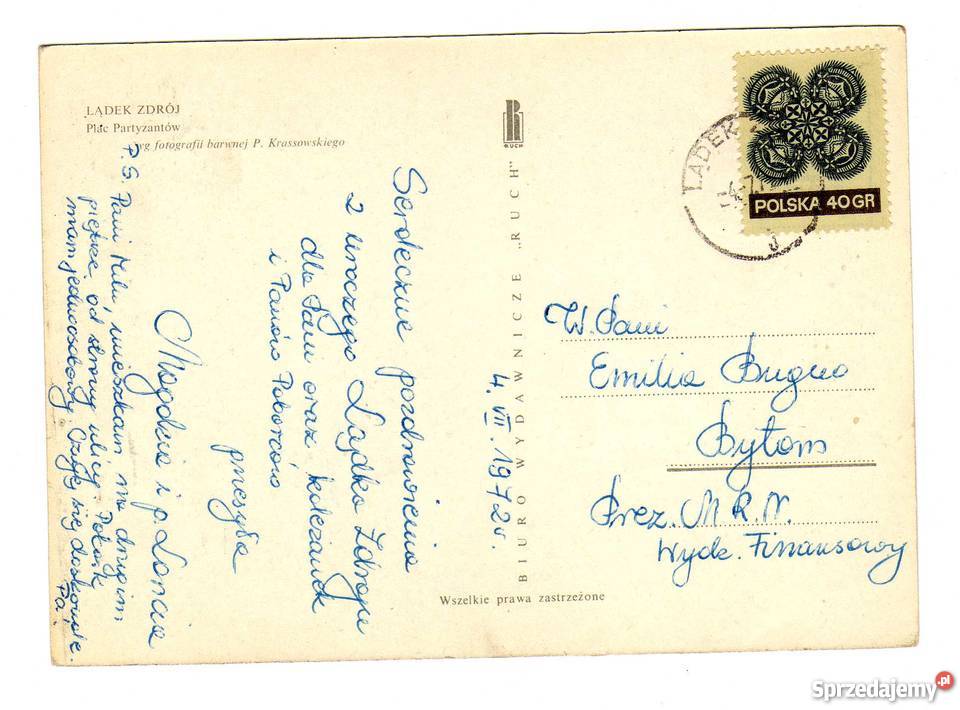 LĄDEK ZDRÓJ
Plac Partyzantów
wg fotografii barwnej P. Krassowskiego
RUCH
BIURO WYDAWNICZE „RUCH"
Wszelkie prawa zastrzeżone
LĄDEK
POLSKA 40 GR
Serdeczne pozdrowienia
z uroczego Lądka Zdroju
dla Pani oraz koleżanek
i Panów Poborców
przesyła
Magdzia i p.
4. VII. 1972r.
P.S. Pani Milu, mieszkam na drugim
piętrze, od strony ulicy. Pokoik
mam jednoosobowy. Czuję się doskonale.
Pa.
W. Pani
Emilia Bugno
Bytom
Prez. M.R.N.
Wydz. Finansowy
Sprzedajemy.pl